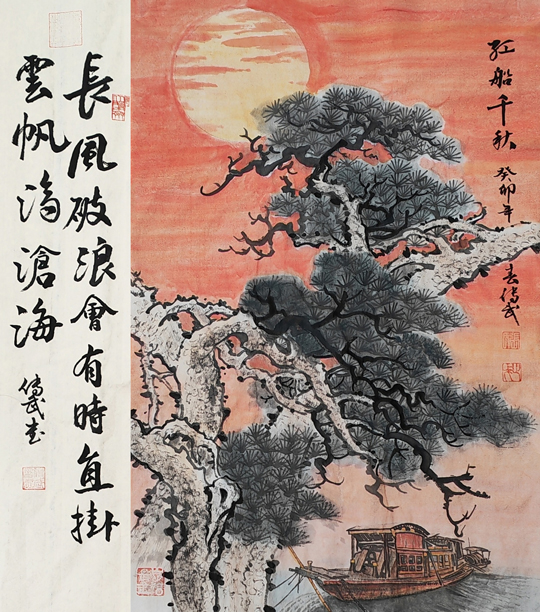 红船千秋
癸卯年
春傳武
長風破浪會有時直掛
雲帆济滄海
傳武書